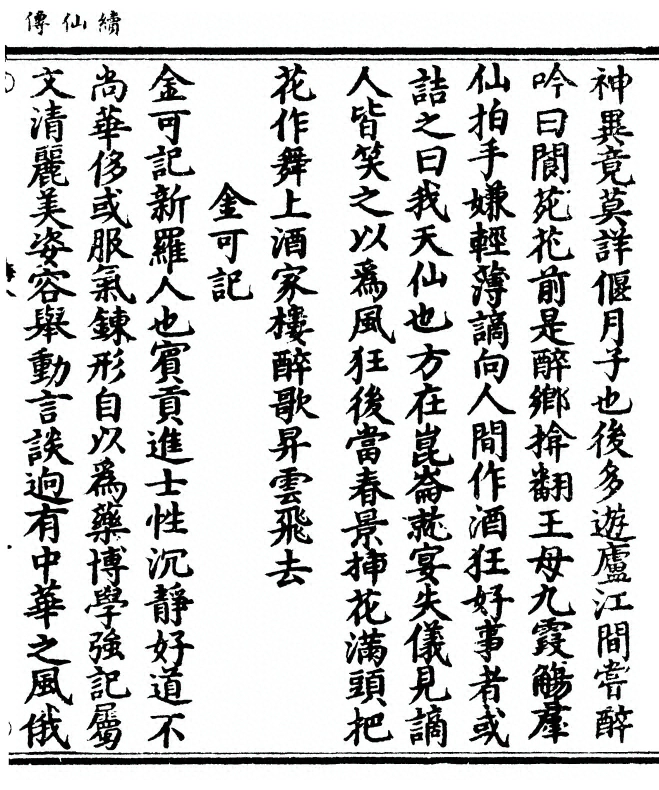 續仙傳
神異竟莫詳偓月子也後多遊廬江間嘗醉
吟曰閬苑花前是醉鄉揜翻王母九霞觴羣
仙拍手嫌輕薄謫向人間作酒狂好事者或
詰之曰我天仙也方在崑崙就宴失儀見謫
人皆笑之以爲風狂後當春景揷花滿頭把
花作舞上酒家樓醉歌昇雲飛去
金可記
金可記新羅人也賓貢進士性沉靜好道不
尚華侈或服氣鍊形自以爲藥博學強記屬
文清麗美姿容舉動言談逈有中華之風俄